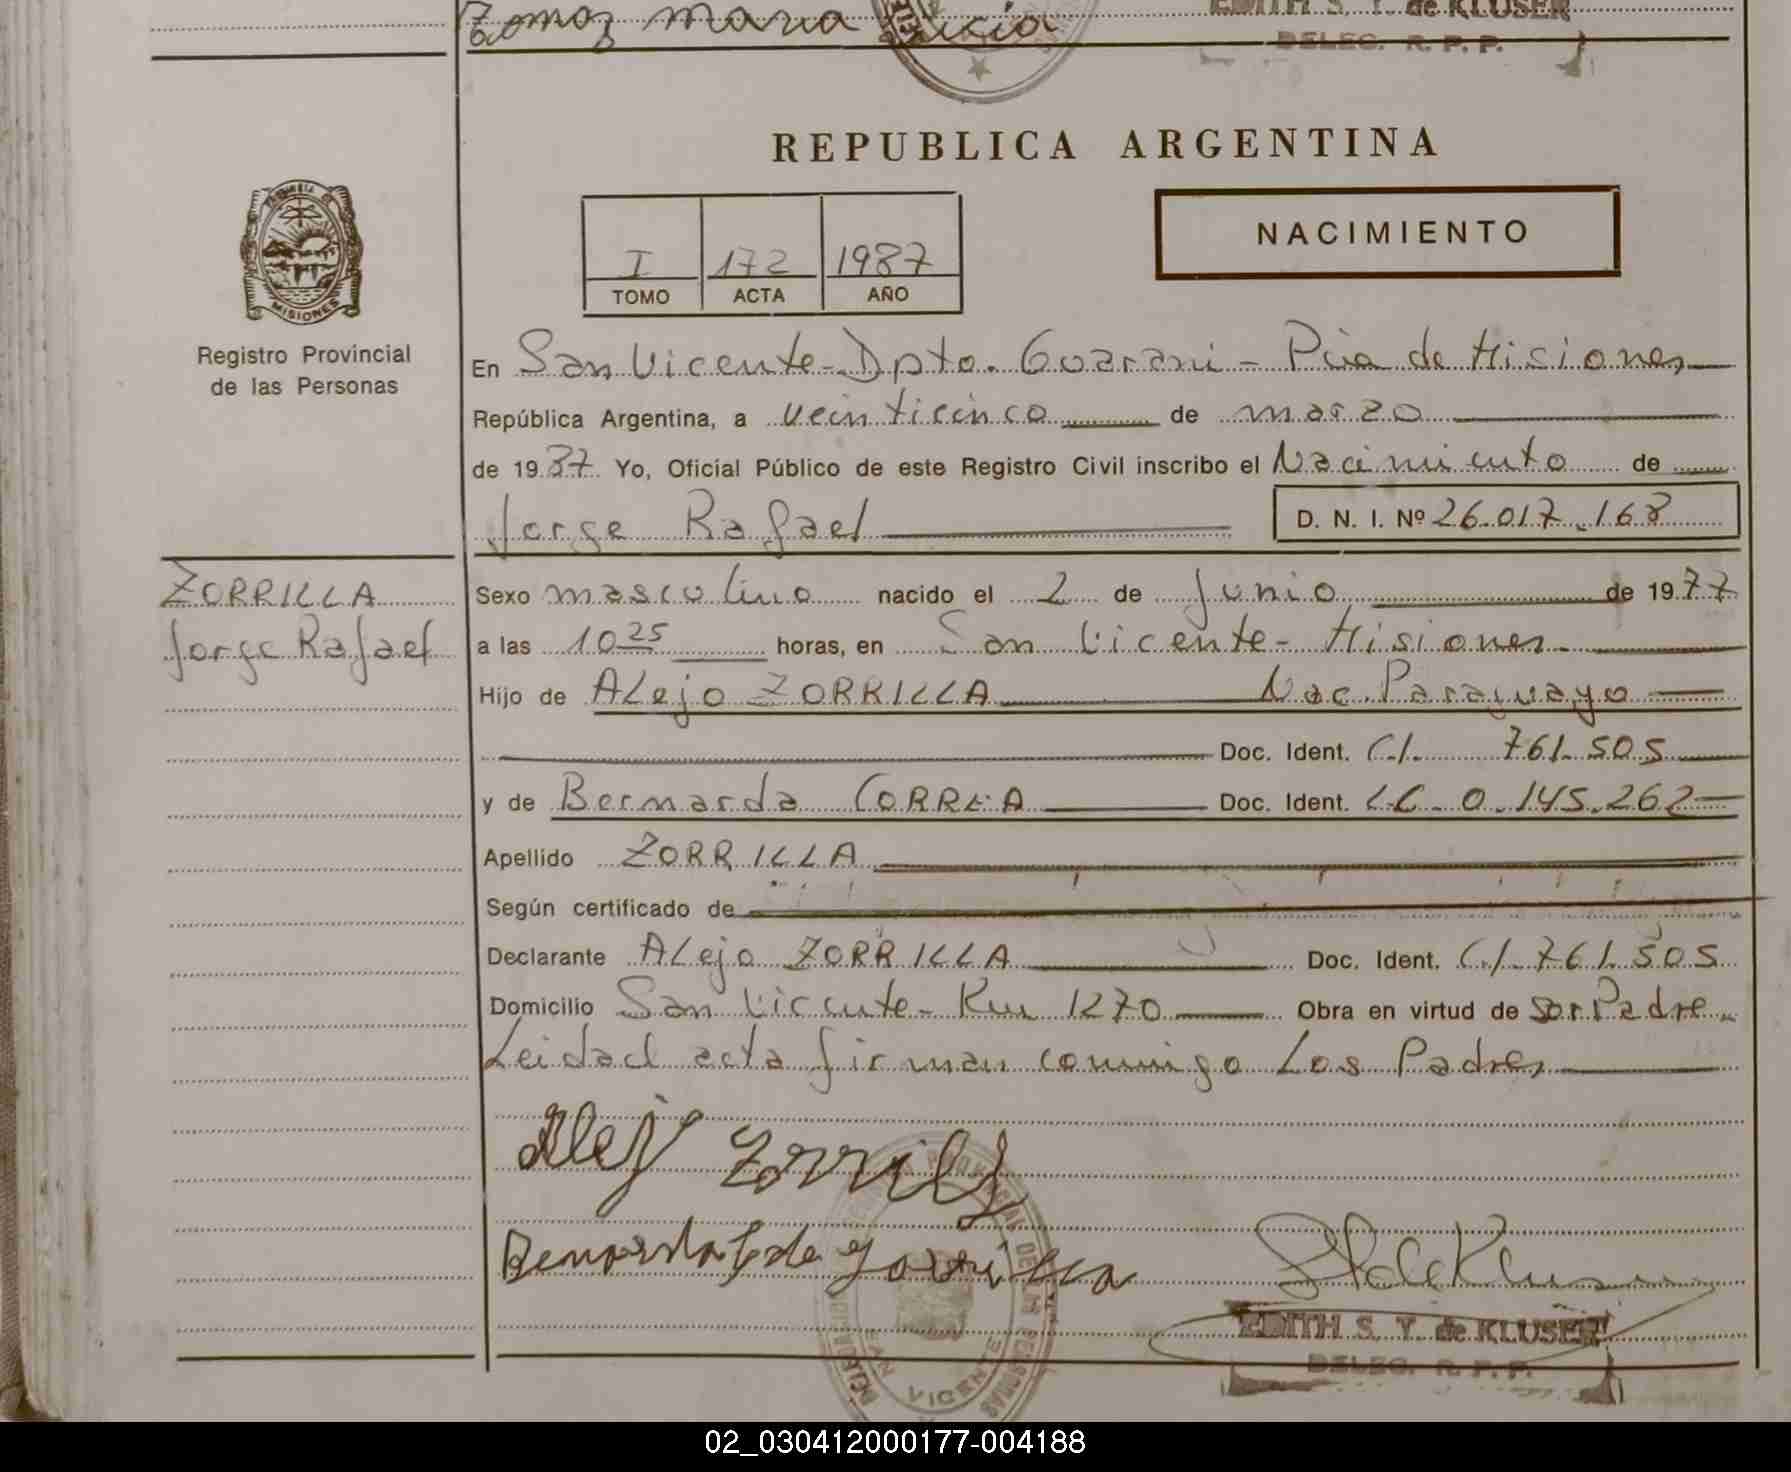 Gomoz Maria
EDITH S. Y. de KLUSER
DELEG. R. P. P.
REPUBLICA ARGENTINA
MISIONES
Registro Provincial
de las Personas
I 172 1987
TOMO ACTA AÑO
NACIMIENTO
En San Vicente - Dpto. Guarani - Pcia de Misiones
República Argentina, a veinticinco de marzo
de 1987 Yo, Oficial Público de este Registro Civil inscribo el Nacimiento de
Jorge Rafael D. N. I. Nº 26.017.168
ZORRILLA
Jorge Rafael
Sexo masculino nacido el 2 de Junio de 1977
a las 10 25 horas, en San Vicente - Misiones
Hijo de ALejo ZORRILLA Nac. Paraguayo
Doc. Ident. C.I. 761.505
y de Bernarda CORREA Doc. Ident. LC. 0.145.262
Apellido ZORRILLA
Según certificado de
Declarante ALejo ZORRILLA Doc. Ident. C.I. 761.505
Domicilio San Vicente - Km 1270 Obra en virtud de Ser Padre
Leida el acta firman conmigo Los Padres
Alejo Zorrilla
Bernarda C de Zorrilla
EDITH S. Y. de KLUSER
DELEG. R. P. P.
SAN VICENTE
02_030412000177-004188